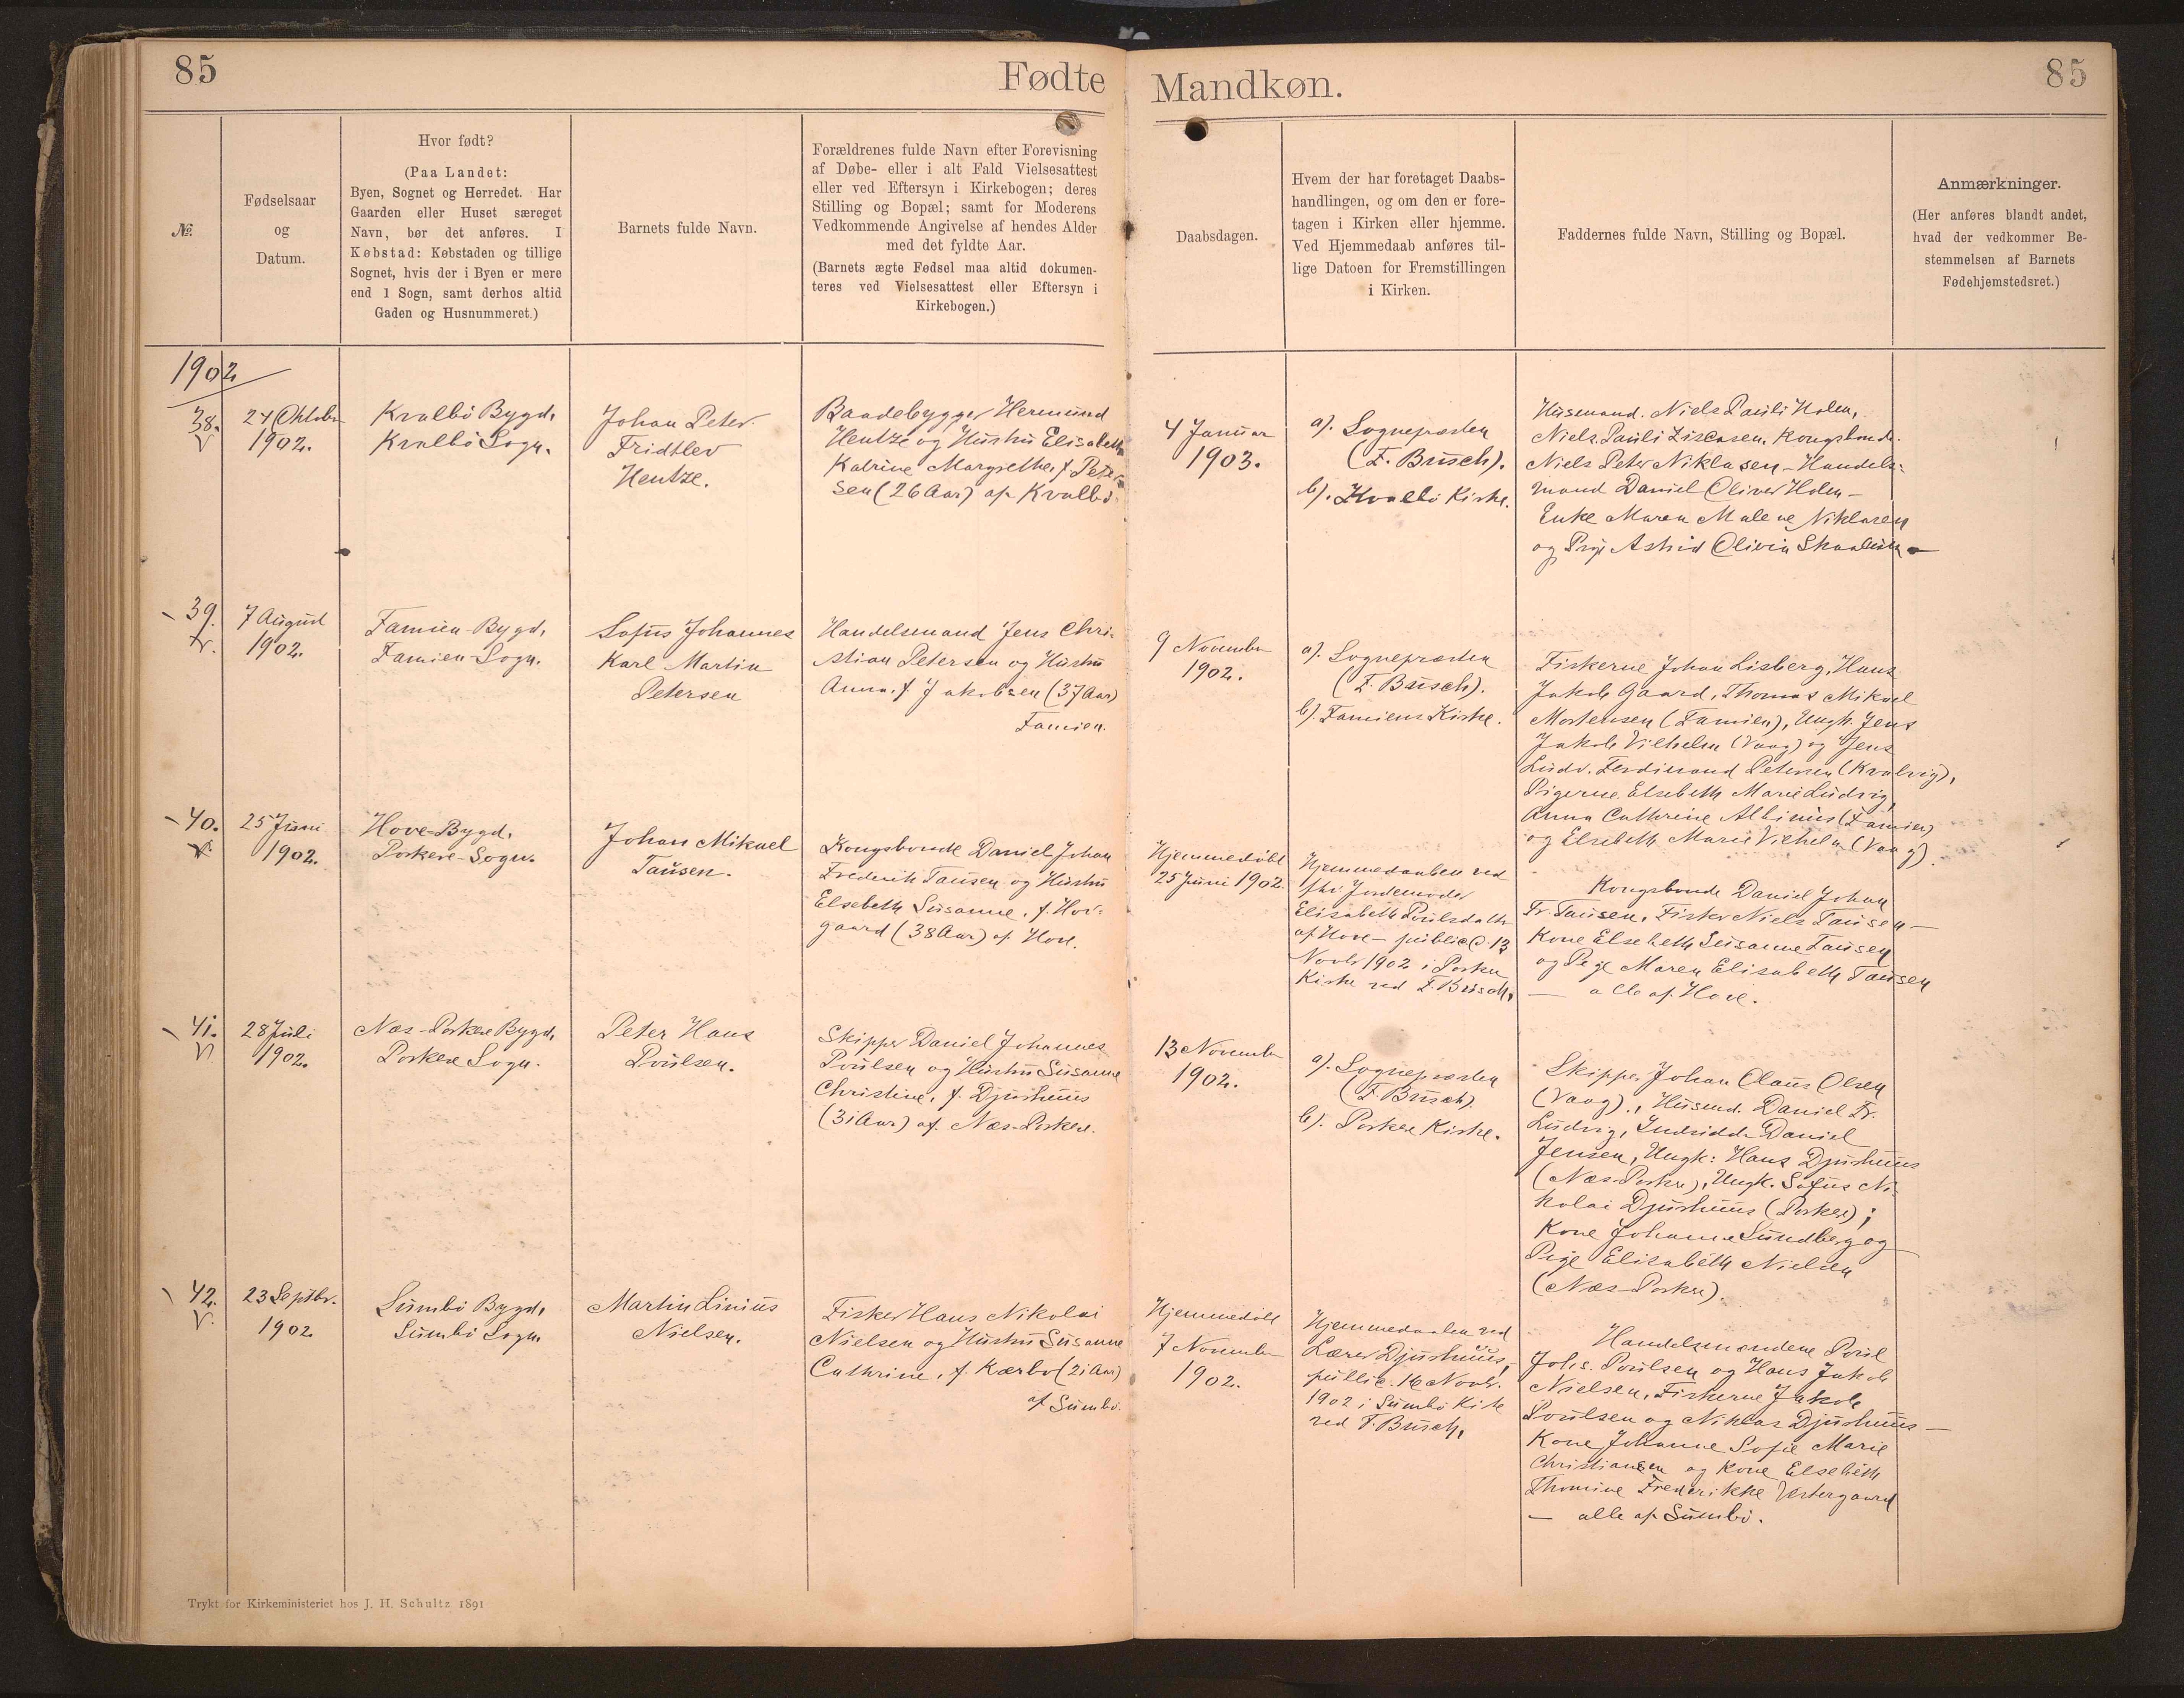 85
Fødte
Mandkøn.
85
№
Fødselsaar
og
Datum.
Hvor født?
(Paa Landet:
Byen, Sognet og Herredet. Har
Gaarden eller Huset særeget
Navn, bør det anføres. I
Købstad: Købstaden og tillige
Sognet, hvis der i Byen er mere
end 1 Sogn, samt derhos altid
Gaden og Husnummeret.)
Barnets fulde Navn.
Forældrenes fulde Navn efter Forevisning
af Døbe- eller i alt Fald Vielsesattest
eller ved Eftersyn i Kirkebogen; deres
Stilling og Bopæl; samt for Moderens
Vedkommende Angivelse af hendes Alder
med det fyldte Aar.
(Barnets ægte Fødsel maa altid dokumen-
teres ved Vielsesattest eller Eftersyn i
Kirkebogen.)
Daabsdagen.
Hvem der har foretaget Daabs-
handlingen, og om den er fore-
tagen i Kirken eller hjemme.
Ved Hjemmedaab anføres til-
lige Datoen for Fremstillingen
i Kirken.
Faddernes fulde Navn, Stilling og Bopæl.
Anmærkninger.
(Her anføres blandt andet,
hvad der vedkommer Be-
stemmelsen af Barnets
Fødehjemstedsret.)
1902
38.
24 Oktober
1902.
Kvalbö Bygd,
Kvalbö Sogn.
Johan Peter
Fridtlev
Hentze.
Baadebygger Hermund
Hentze og Hustru Elisabeth
Katrine Margrethe, f. Peter-
sen (26 Aar) af Kvalbö.
4 Januar
1903.
a). Sognepræsten
(F. Busch).
b). Kvalbö Kirke.
Husmand. Niels Pauli Holm,
Niels Pauli Kongsbonde
Niels Peter Niklasen - Handels-
mand Daniel Oliver Holm -
Enke Maren Malene Niklasen
og Pige Astrid Olivia
39.
7 August
1902.
Famien-Bygd,
Famien-Sogn.
Sofus Johannes
Karl Martin
Petersen
Handelsmand Jens Chri-
stian Petersen og Hustru
Anna, f. Jakobsen (37 Aar)
Famien.
9 November
1902.
a). Sognepræsten
(F. Busch).
b). Famiens Kirke.
Fiskerne Johan Lisberg, Hans
Jakob Gaard, Thomas Mikael
Mortensen (Famien), Ungk. Jens
Jakob Vilhelm (Vaag) og Jens
Ludv. Ferdinand Petersen (Kvalvig),
Pigerne Elsebeth Marie Ludvig,
Anna Cathrine Albinus (Famien)
og Elsebeth Marie Vilhelm (Vaag).
40.
25 Juni
1902.
Hove-Bygd,
Porkere-Sogn.
Johan Mikael
Tausen.
Kongsbonde Daniel Johan
Frederik Tausen og Hustru
Elsebeth Susanne, f. Hov-
gaard (38 Aar) af Hove.
Hjemmedøbt
25 Juni 1902.
Hjemmedaaben ved
Jordemoder
Elisabeth
af Hove - public. 13
Novbr 1902 i Porkere
Kirke ved F. Busch.
Kongsbonde Daniel Johan
Fr. Tausen, Fisker Niels Tausen -
Kone Elsebeth Susanne Tausen
og Pige Maren Elisabeth Tausen
- alle af Hove.
41.
28 Juli
1902.
Næs-Porkere Bygd,
Porkere Sogn.
Peter Hans
Poulsen.
Skipper Daniel Johannes
Poulsen og Hustru Susanne
Christine, f. Djurhuus
(31 Aar) af Næs-Porkere.
13 November
1902.
a). Sognepræsten
(F. Busch).
b). Porkere Kirke.
Skipper Johan Claus Olsen
(Vaag)., Husmd. Daniel Fr.
Ludvig, Daniel
Jensen, Ungk: Hans Djurhuus
(Næs-Porkere), Ungk. Sofus Ni-
kolai Djurhuus (Porkere);
Kone Johanne Sundberg og
Pige Elisabeth Nielsen
(Næs-Porkere).
42.
23 Septbr.
1902
Sumbö Bygd,
Sumbö Sogn
Martin Linius
Nielsen.
Fisker Hans Nikolai
Nielsen og Hustru Susanne
Cathrine, f. Kærbo (21 Aar)
af Sumbö.
Hjemmedøbt
7 November
1902.
Hjemmedaaben ved
Lærer Djurhuus,
public. 16 Novbr.
1902 i Sumbö Kirke
ved F. Busch.
Handelsmændene Poul
Johs. Poulsen og Hans Jakob
Nielsen, Fiskerne Jakob
Poulsen og Niklas Djurhuus -
Kone Johanne Sofie Marie
Christiansen og Kone Elsebeth
Thomine Frederikke Vestergaard
- alle af Sumbö.
Trykt for Kirkeministeriet hos J. H. Schultz 1891